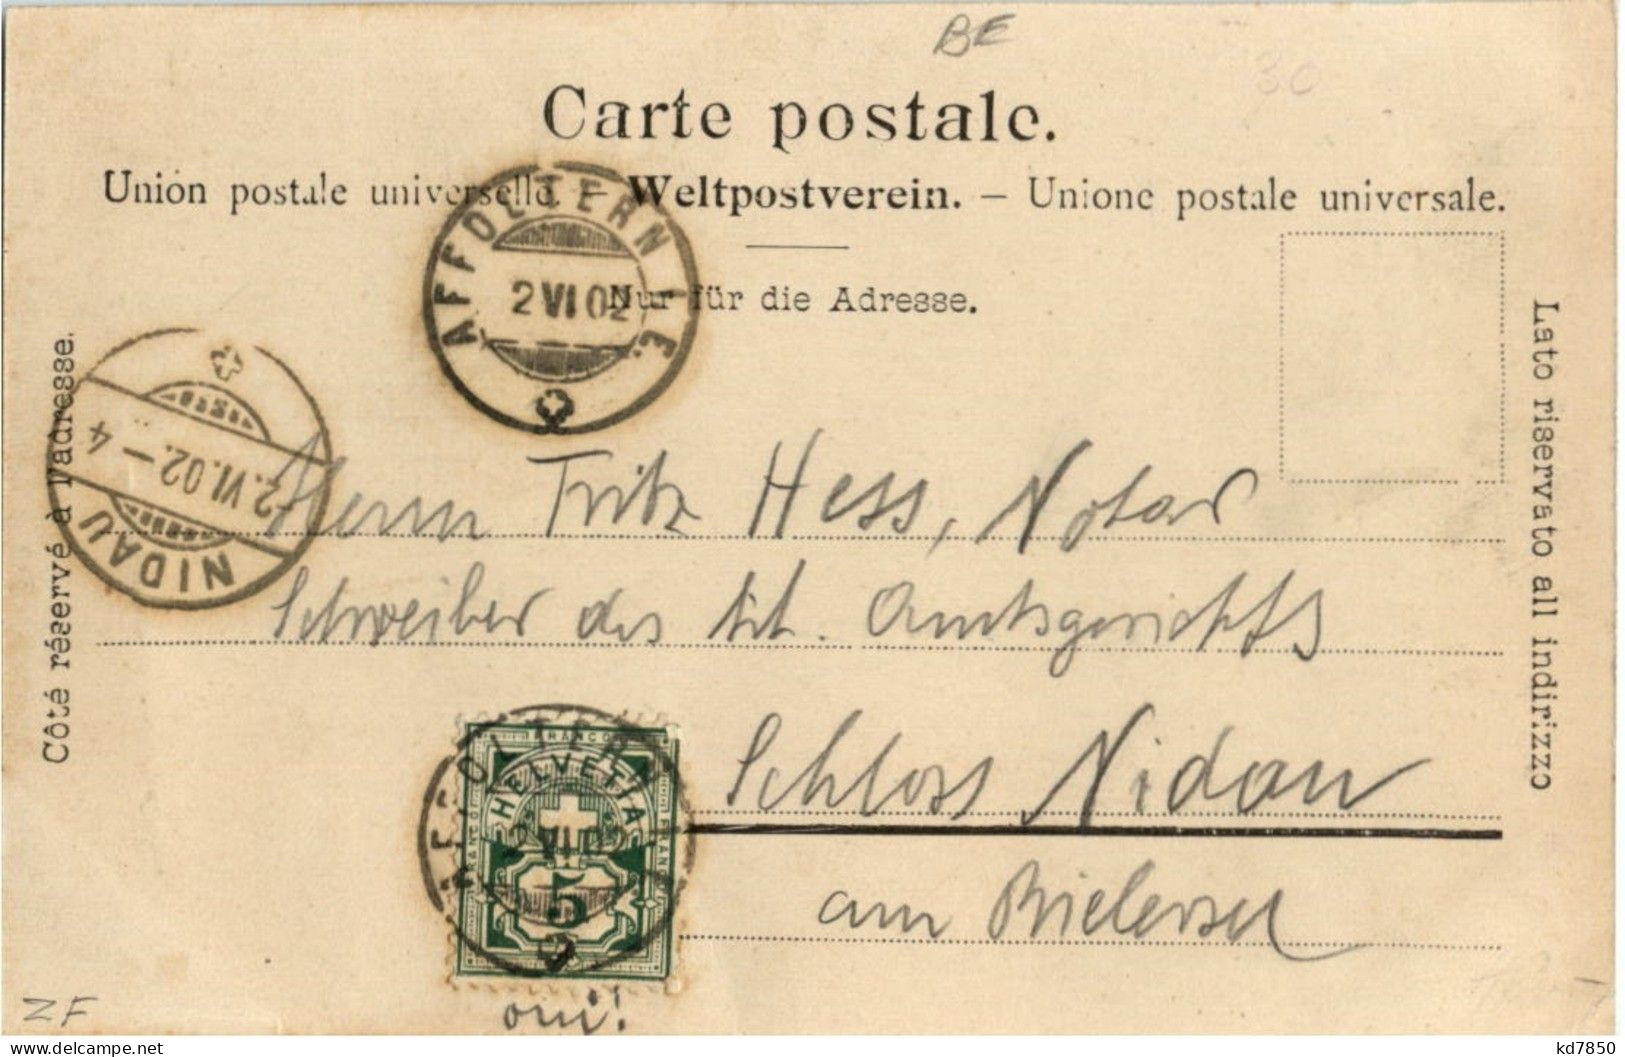 BE
30
Carte postale.
Union postale universelle. – Weltpostverein. – Unione postale universale.
Nur für die Adresse.
AFFOLTERN I. E.
2 VI 02
Côté réservé à l'adresse.
Lato riservato all indirizzo
NIDAU
2. VI. 02. – 4
Herrn Fritz Hess, Notar
Schreiber des tit. Amtsgerichts
Schloss Nidau
am Bielersee
AFFOLTERN
2 VI 02
FRANCO
HELVETIA
5
oui!
ZF
kd7850